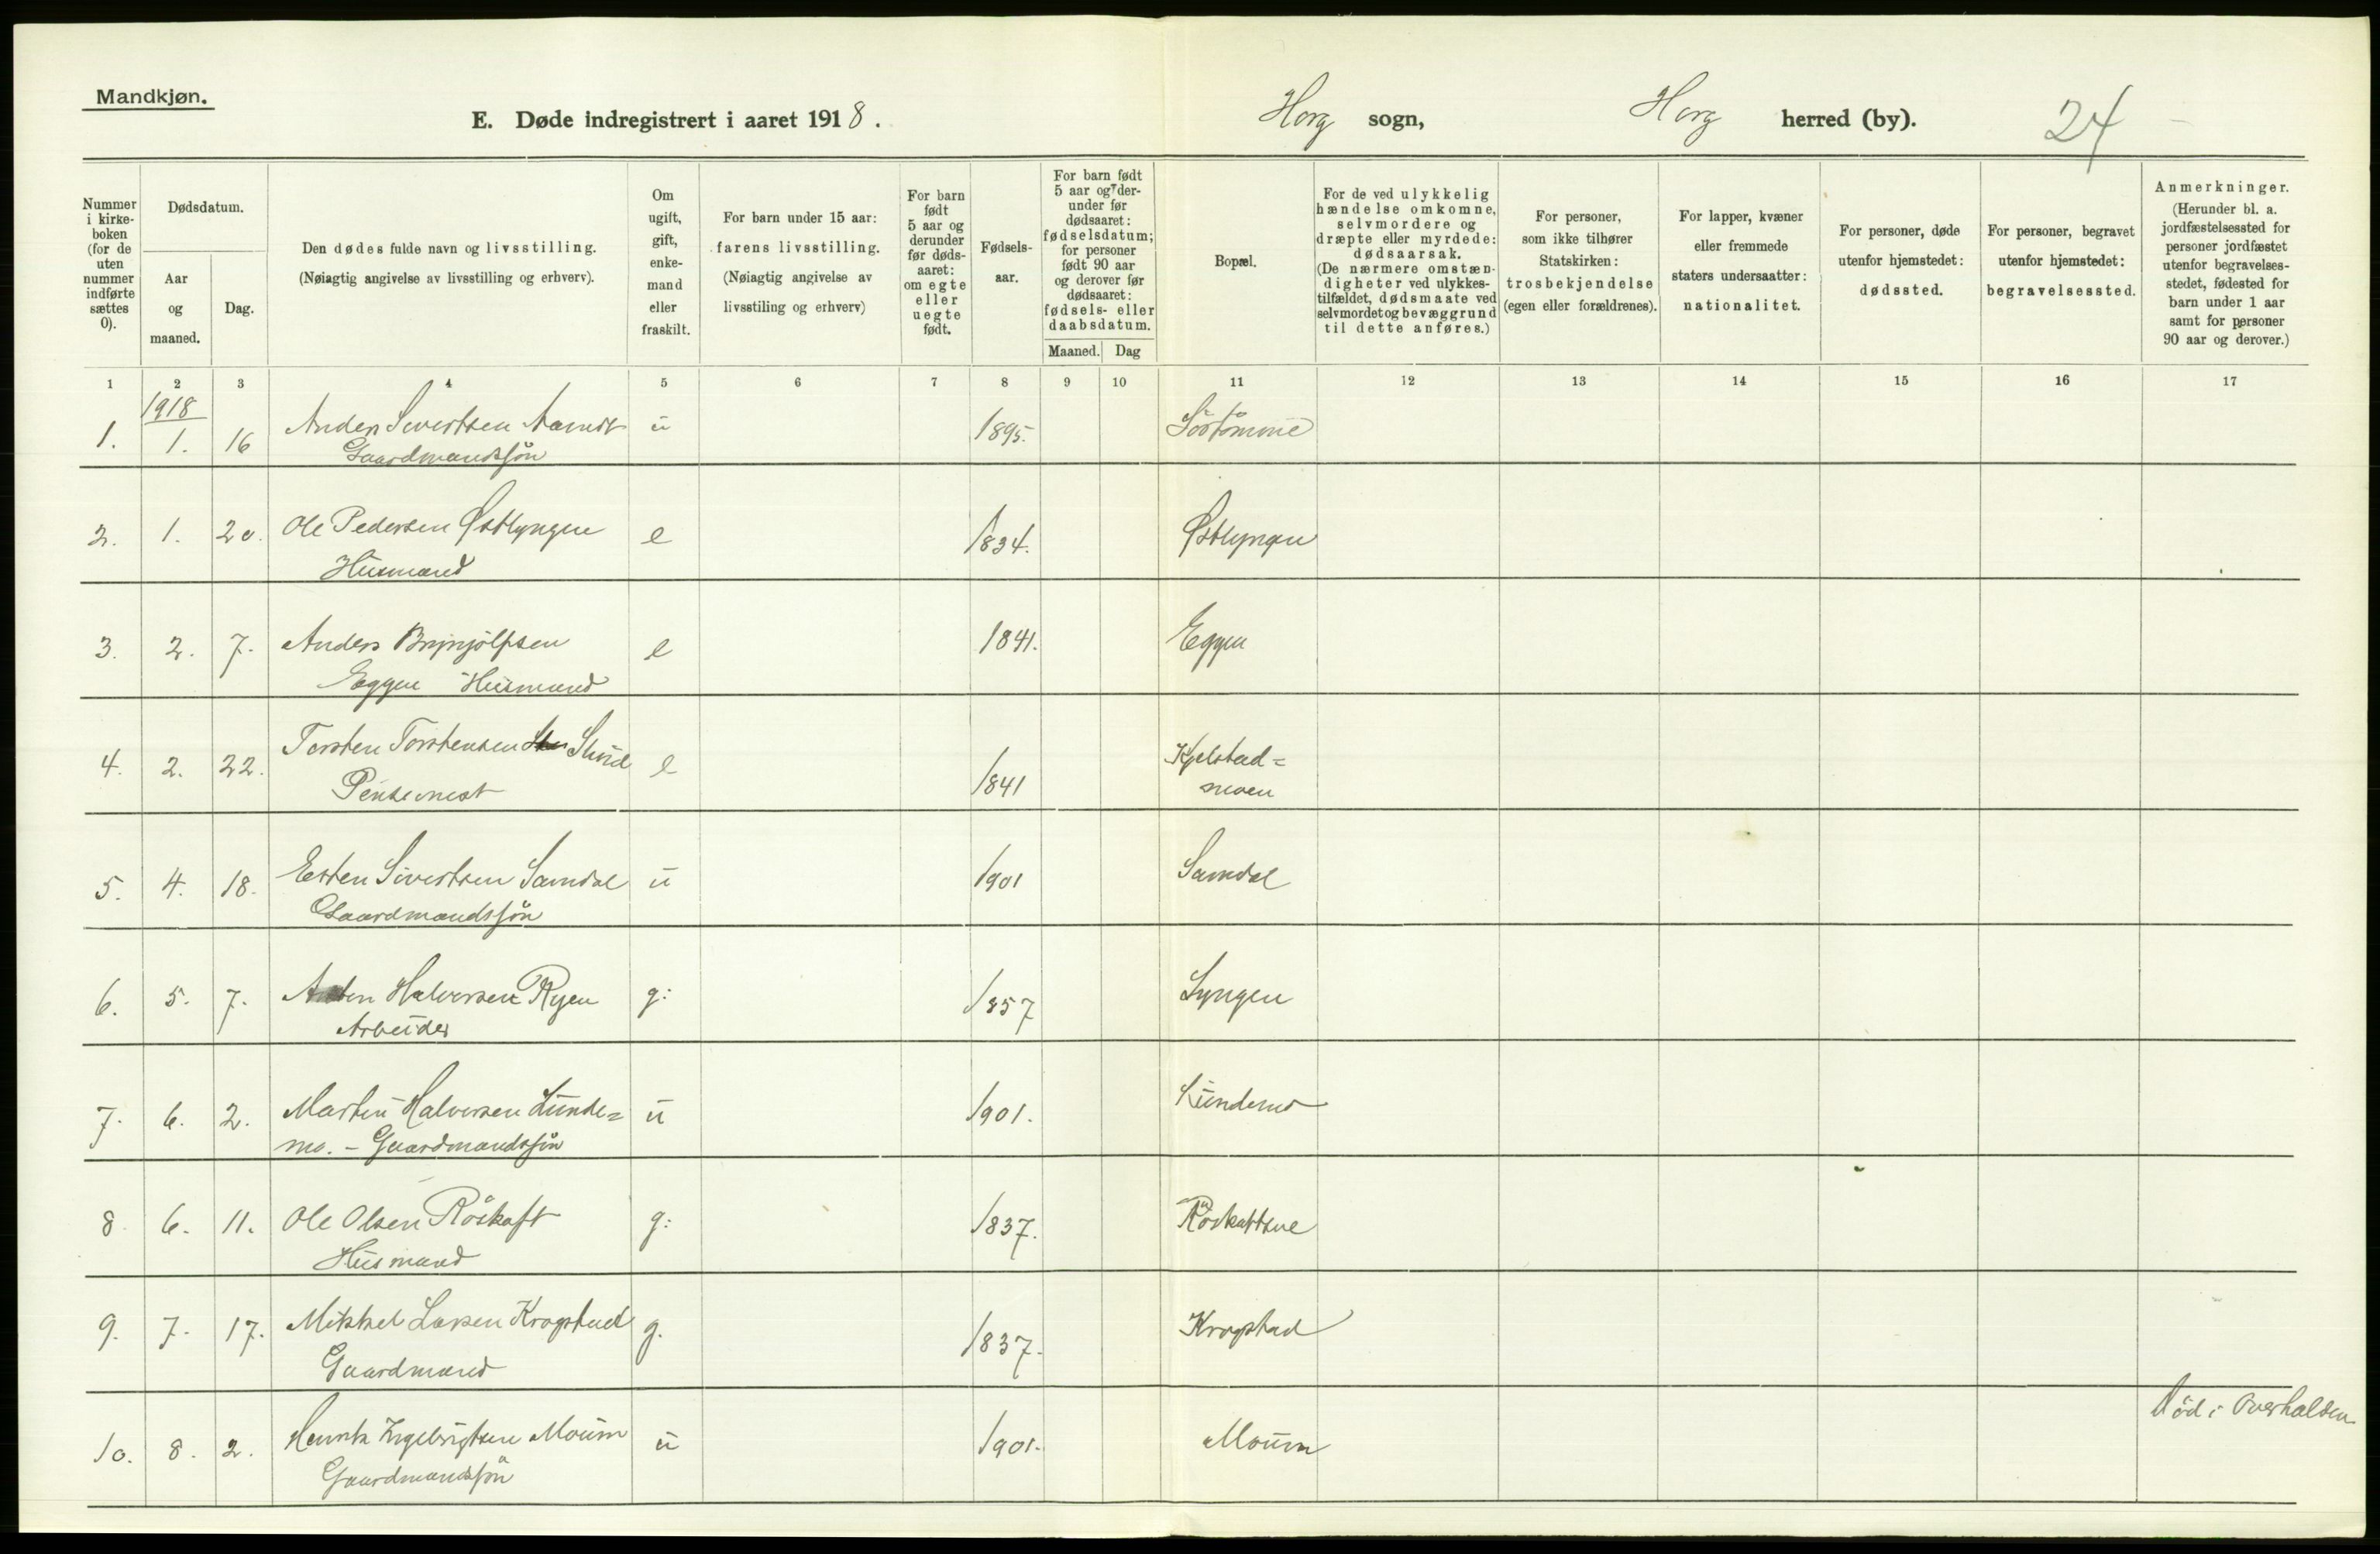 Mandkjøn.
E. Døde indregistrert i aaret 1918.
Horg sogn, Horg herred (by). 24
Nummer i kirke-boken (for de uten nummer indførte sættes 0).
Dødsdatum.
Aar og maaned.
Dag.
Den dødes fulde navn og livsstilling.
(Nøiagtig angivelse av livsstilling og erhverv).
Om ugift, gift, enke-mand eller fraskilt.
For barn under 15 aar:
farens livsstilling.
(Nøiagtig angivelse av livsstiling og erhverv)
For barn født 5 aar og derunder før døds-aaret: om egte eller uegte født.
Fødsels-aar.
For barn født 5 aar og der-under før dødsaaret: fødselsdatum; for personer født 90 aar og derover før dødsaaret: fødsels- eller daabsdatum.
Maaned. Dag
Bopæl.
For de ved ulykkelig hændelse omkomne, selvmordere og dræpte eller myrdede: dødsaarsak.
(De nærmere omstæn-digheter ved ulykkes-tilfældet, dødsmaate ved selvmordet og bevæggrund til dette anføres.)
For personer, som ikke tilhører Statskirken: trosbekjendelse (egen eller forældrenes).
For lapper, kvæner eller fremmede staters undersaatter: nationalitet.
For personer, døde utenfor hjemstedet: dødssted.
For personer, begravet utenfor hjemstedet: begravelsessted.
Anmerkninger.
(Herunder bl. a. jordfæstelsessted for personer jordfæstet utenfor begravelses-stedet, fødested for barn under 1 aar samt for personer 90 aar og derover.)
1 2 3 4 5 6 7 8 9 10 11 12 13 14 15 16 17
1918
1. 1. 16 Anders Sivertsen u 1895.
Gaardmandssøn
2. 1. 20. Ole Pedersen Østlyngen e 1834. Østlyngen
Husmand
3. 2. 7. Anders Brynjolfsen e 1841. Eggen
Eggen Husmand
4. 2. 22. Torsten Torstensen e 1841 Kjelstad=
moen
5. 4. 18. Esten Sivertsen Samdal u 1901 Samdal
Gaardmandssøn
6. 5. 7. Halvorsen Ryen g: 1857 Lyngen
Arbeider
7. 6. 2. Martin Halvorsen Lunde= u 1901. Lundemo
mo. - Gaardmandssøn
8 6. 11. Ole Olsen Röskaft g: 1837.
Husmand
9. 7. 17. Mikkel Larsen Krogstad g. 1837. Krogstad
Gaardmand
10. 8. 2. Henrik Ingebrigtsen Moum u 1901. Moum Död i Overhalden
Gaardmandssøn